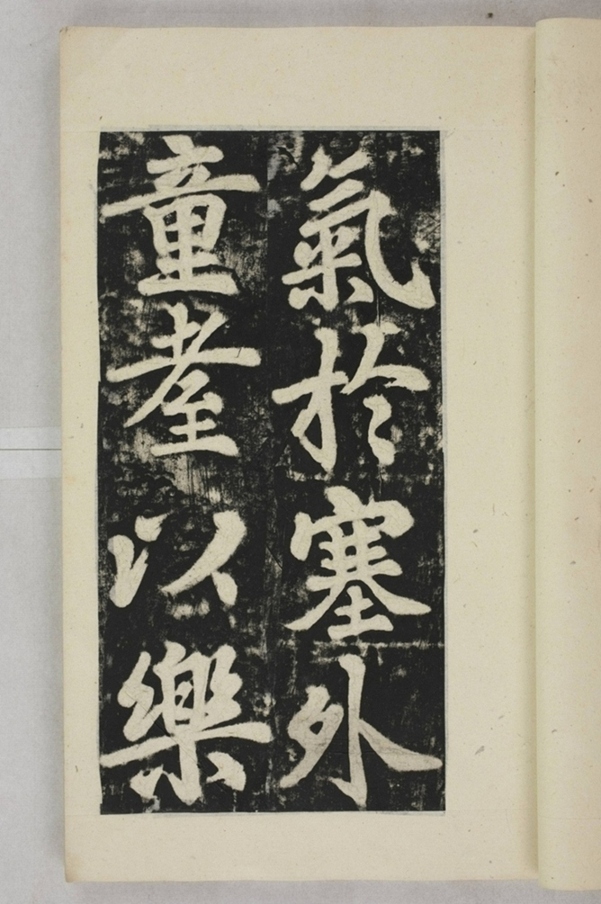 氣於塞外
童耋以樂